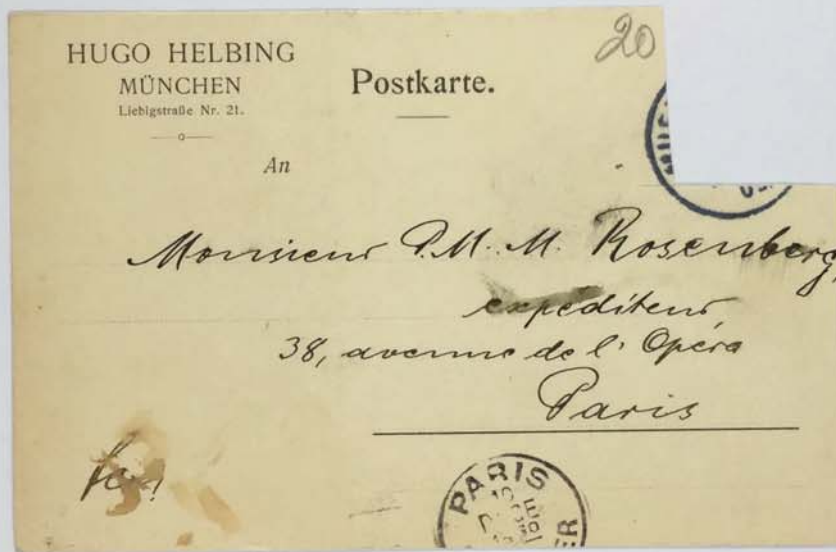 20
HUGO HELBING
MÜNCHEN
Liebigstraße Nr. 21.
Postkarte.
An
Monsieur P. M. M. Rosenberg,
expéditeur
38, avenue de l'Opéra
Paris
PARIS